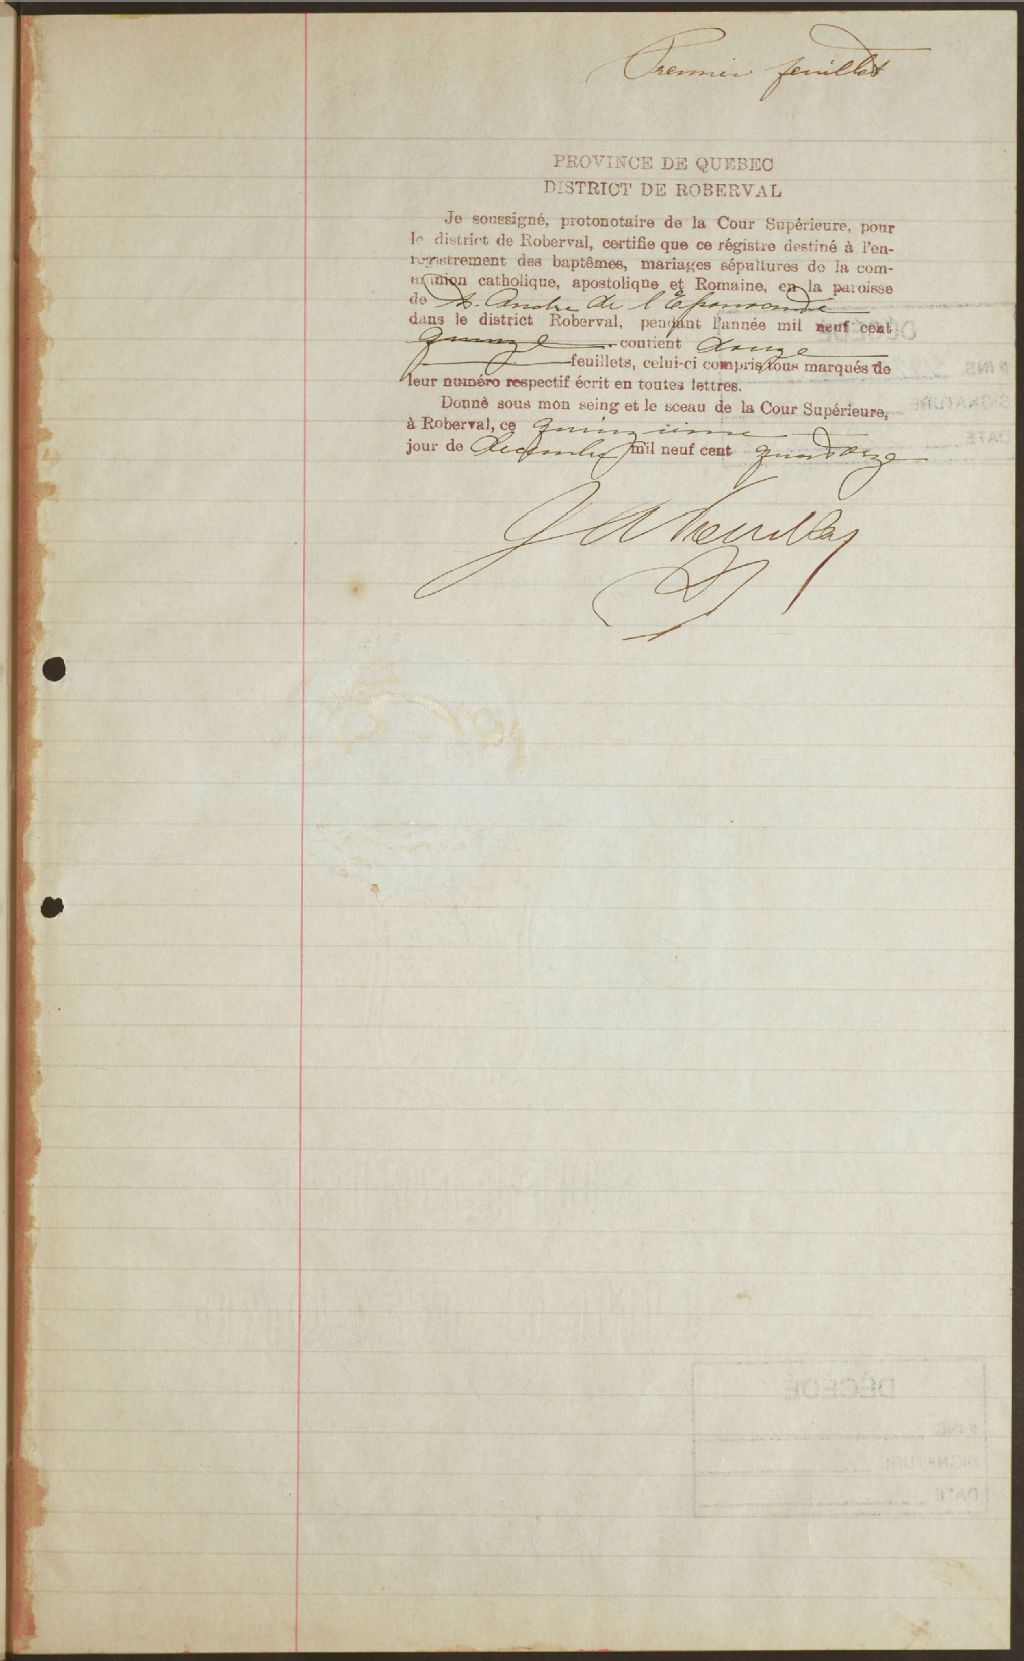 Premier feuillet
PROVINCE DE QUEBEC
DISTRICT DE ROBERVAL
Je soussigné, protonotaire de la Cour Supérieure, pour
le district de Roberval, certifie que ce régistre destiné à l'en-
registrement des baptêmes, mariages sépultures de la com-
munion catholique, apostolique et Romaine, en la paroisse
de St. André de l'Epouvante
dans le district Roberval, pendant l'année mil neuf cent
quinze contient douze
feuillets, celui-ci compris tous marqués de
leur numéro respectif écrit en toutes lettres.
Donnè sous mon seing et le sceau de la Cour Supérieure,
à Roberval, ce quinzième
jour de décembre mil neuf cent quatorze
DÉCÉDÉ
INS.
SIGNATURE
DATE
DÉCÉDÉ
INS.
SIGNATURE
DATE